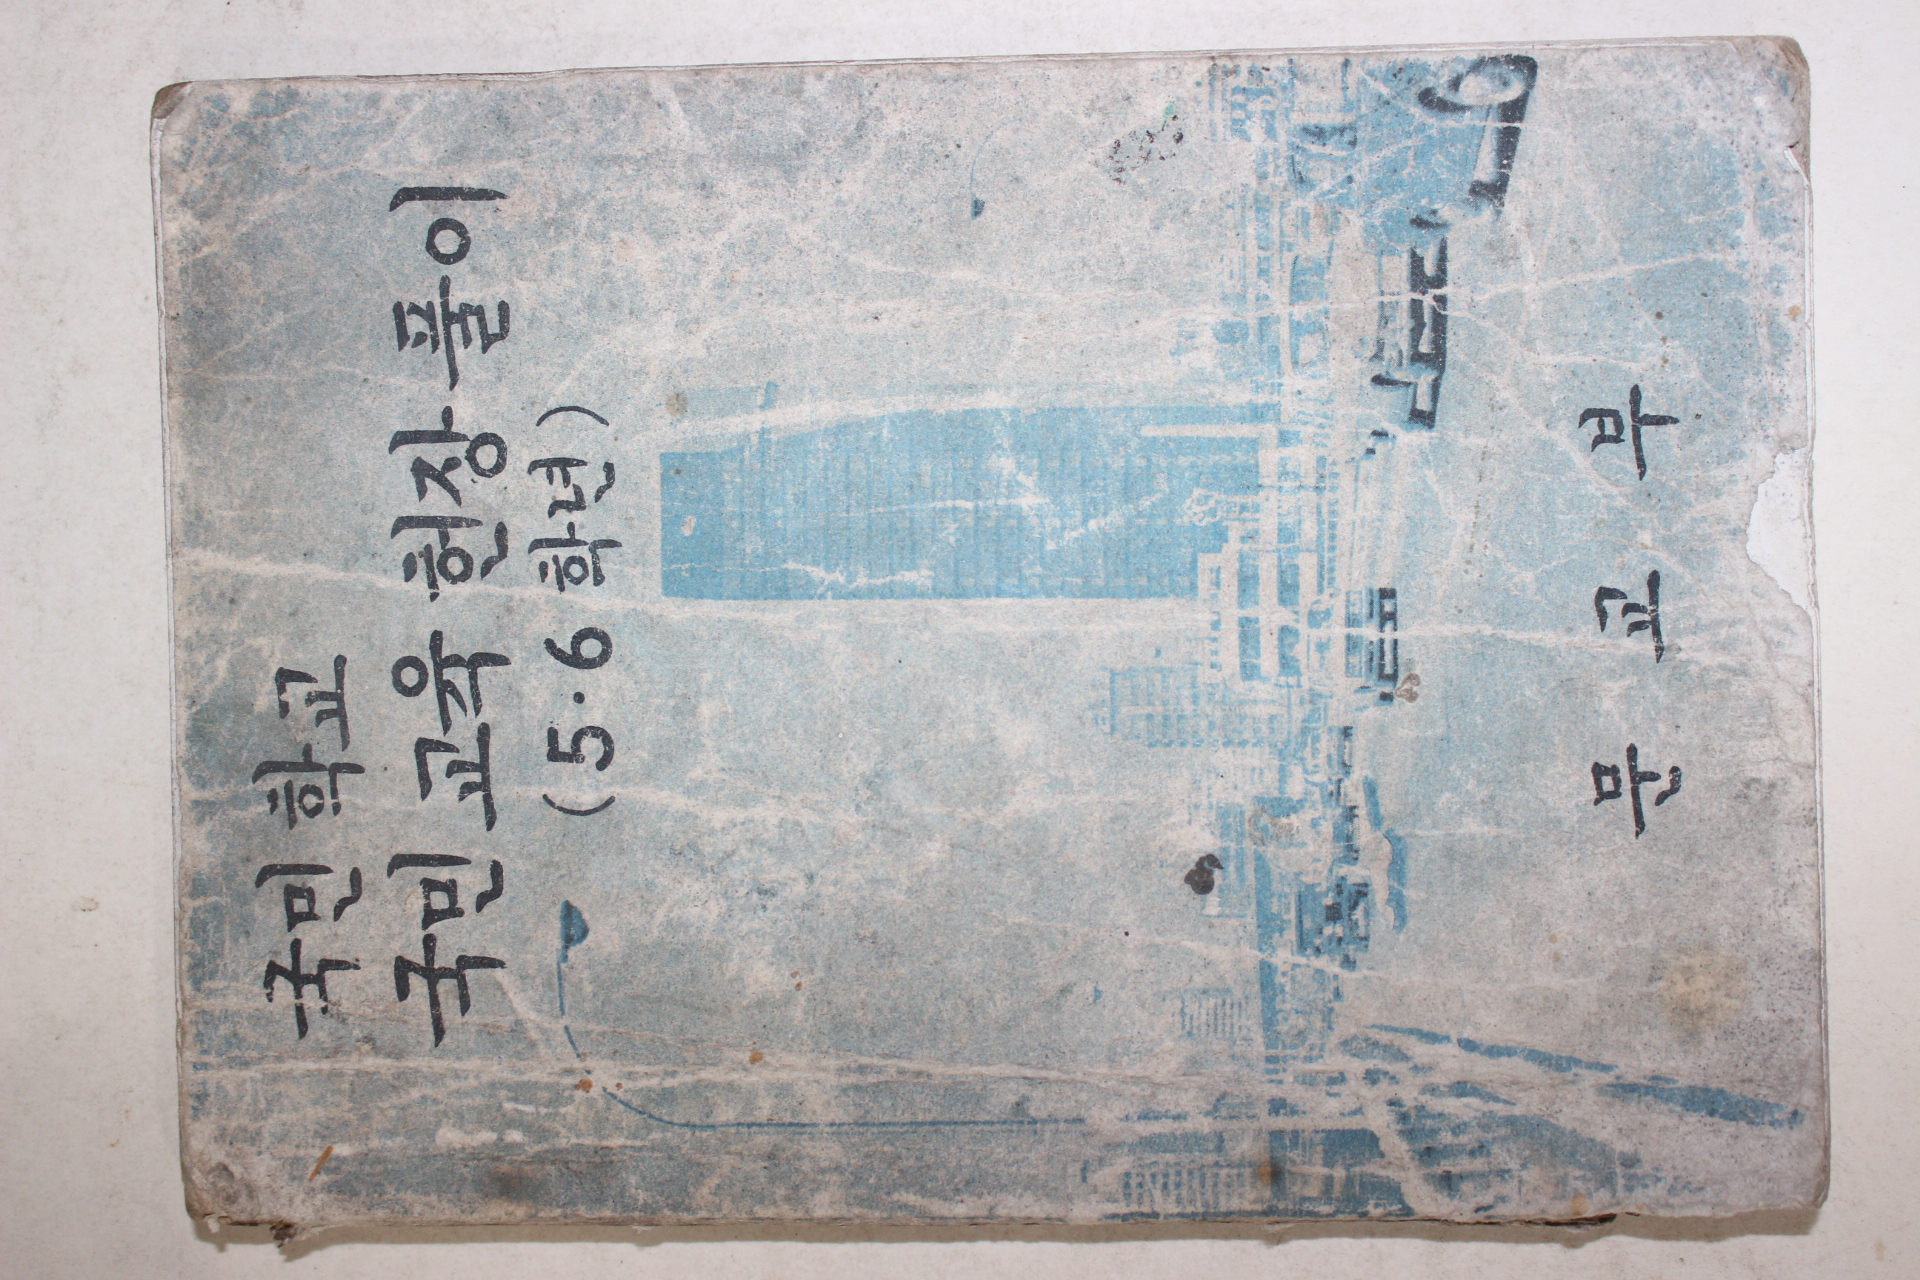 국민 학교
국민 교육 헌장 풀이
( 5·6 학년 )
문 교 부